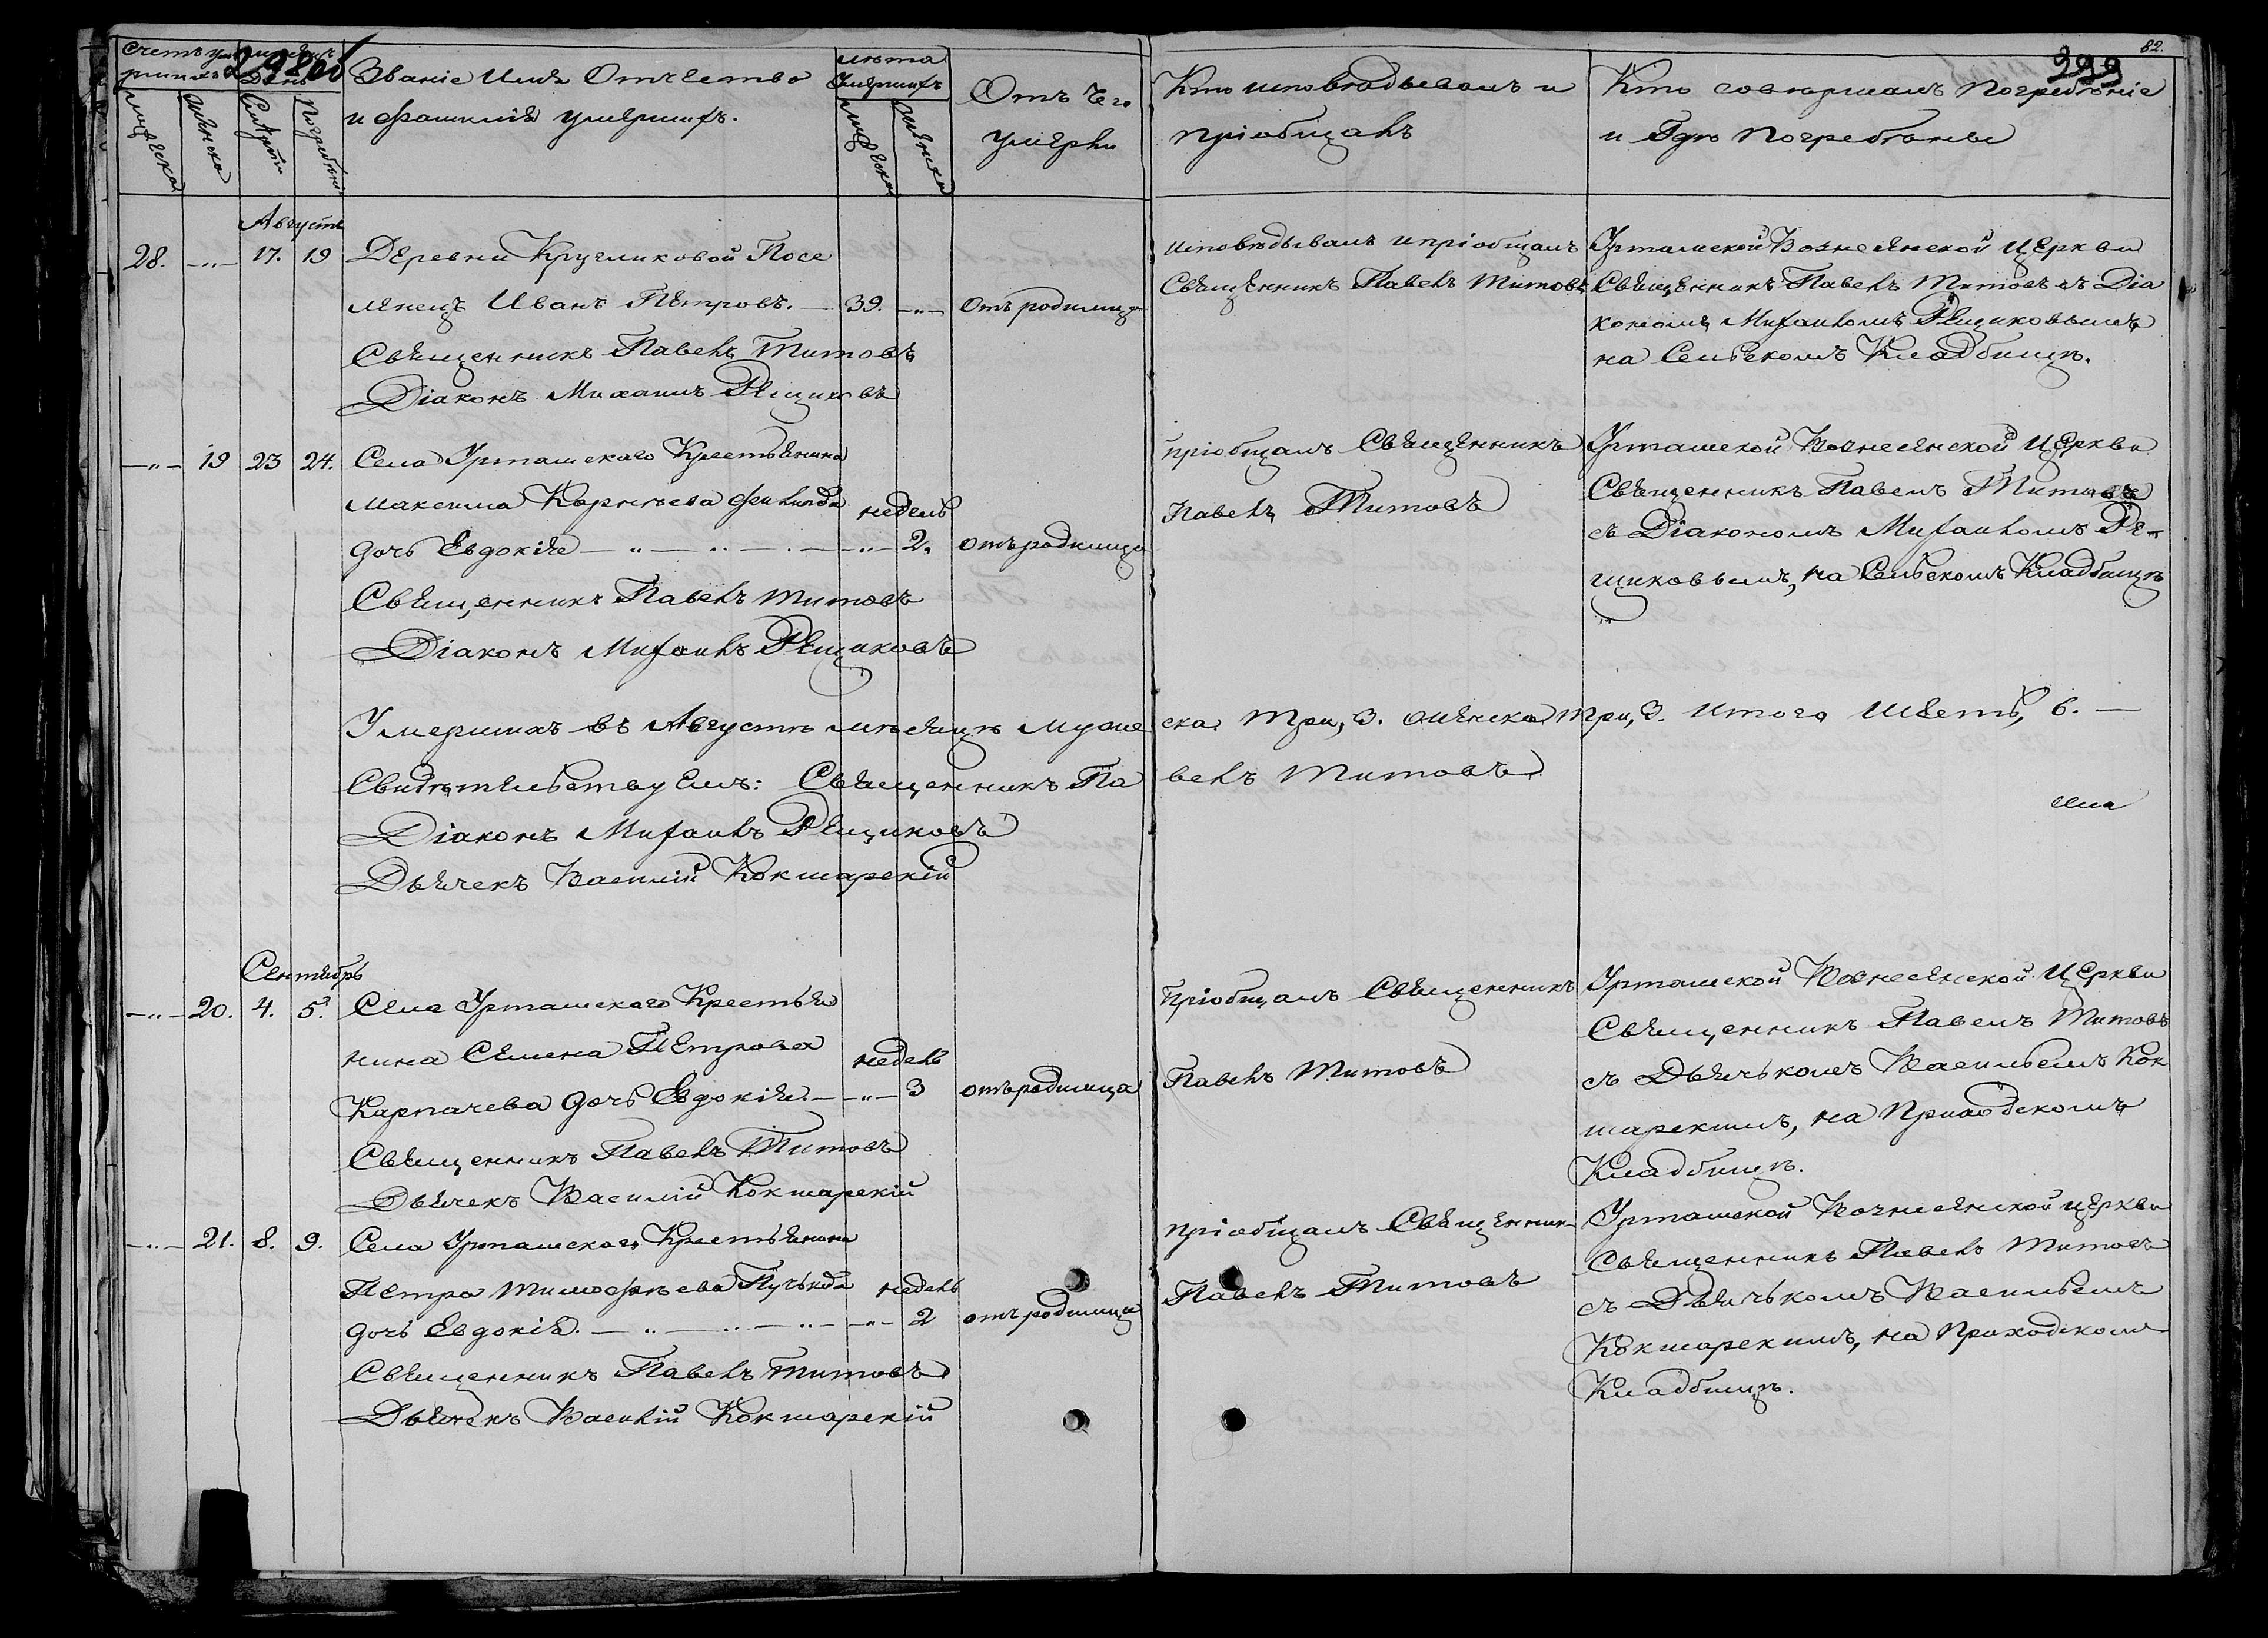 Счетъ умершихъ
298об
День
мужеска
женска
Смерти
Погребенія
Званіе Имя Отчество
и фамилія умершихъ.
лѣта
умершихъ
мужеска
женска
Отъ Чего
умерли
Кто исповѣдывалъ и
пріобщалъ
Кто совершалъ Погребеніе
и Гдѣ Погребены
82.
299
Августъ
28. —"— 17. 19 Деревни Кругликовой Посе
ленецъ Иванъ Петровъ. — 39. —"— Отъ родимца
Священникъ Павелъ Титовъ
Діаконъ Михаилъ Рещиковъ
исповѣдывалъ и пріобщалъ
Священникъ Павелъ Титовъ
Урташской Вознесенской Церкви
Священникъ Павелъ Титовъ съ Діа
кономъ Михаиломъ Рещиковымъ
на Сельскомъ Кладбищѣ.
—"— 19 23 24. Села Урташскаго Крестьянина
Максима Корнѣева недель
дочь Евдокія —"—"—"— 2. отъ родимца
Священникъ Павелъ Титовъ
Діаконъ Михаилъ Рещиковъ
пріобщалъ Священникъ
Павелъ Титовъ
Урташской Вознесенской Церкви
Священникъ Павелъ Титовъ
съ Діакономъ Михаиломъ Ре-
щиковымъ, на Сельскомъ Кладбищѣ
Умершихъ въ Августѣ мѣсяцѣ муже ска три, 3. женска три, 3. Итого Шесть, 6. —
Свидѣтельствуемъ: Священникъ Па велъ Титовъ
Діаконъ Михаилъ Рещиковъ
Дьячекъ Василій Кокшарскій
села
Сентябрь
—"— 20. 4. 5. Села Урташскаго Крестья
нина Семена Петрова недель
Карпачева дочь Евдокія. — —"— 3 отъ родимца
Священникъ Павелъ Титовъ
Дьячекъ Василій Кокшарскій
Пріобщалъ Священникъ
Павелъ Титовъ
Урташской Вознесенской Церкви
Священникъ Павелъ Титовъ
съ Дьячькомъ Васильемъ Кок
шарскимъ, на Приходскомъ
Кладбищѣ.
—"— 21. 8. 9. Села Урташскаго Крестьянина
Петра Тимофѣева недель
дочь Евдокія. —"—"—"— 2 отъ родимца
Священникъ Павелъ Титовъ
Дьячекъ Василій Кокшарскій
пріобщалъ Священник
Павелъ Титовъ
Урташской Вознесенской церкви
Священникъ Павелъ Титовъ
съ Дьячькомъ Васильемъ
Кокшарскимъ, на Приходском
Кладбищѣ.